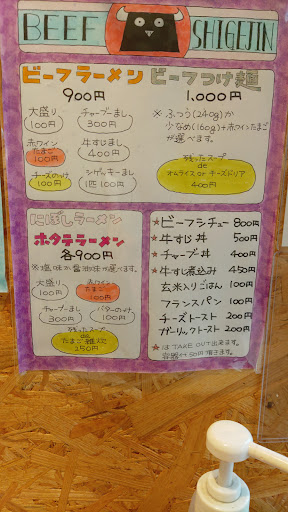 BEEF SHIGEJIN
ビーフラーメン
900円
大盛り
100円
チャーブーまし
300円
赤ワイン
たまご
100円
牛すじまし
400円
チーズのっけ
100円
シゲッキーまし
1匹100円
ビーフつけ麺
1,000円
※ふつう(240g)か
少なめ(160g)+赤ワインたまご
が選べます。
残ったスープ
de
オムライス or チーズドリア
400円
にぼしラーメン
ホタテラーメン
各900円
※塩味か醤油味が選べます。
大盛り
100円
赤ワイン
たまご
100円
チャーブーまし
300円
バターのっけ
100円
残ったスープ
de
たまご雑炊
250円
★ビーフシチュー 800円
★牛すじ丼 500円
★チャーブー丼 400円
★牛すじ煮込み 450円
玄米入りごはん 100円
フランスパン 100円
チーズトースト 200円
ガーリックトースト 200円
★は TAKE OUT出来ます。
容器代50円頂きます。